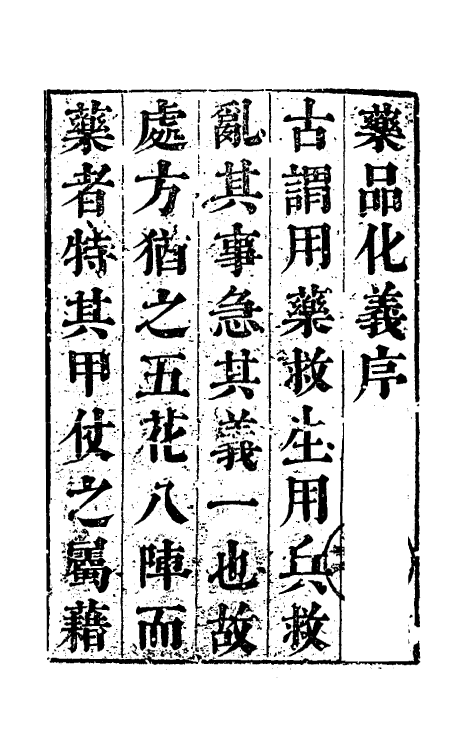 藥品化義序
古謂用藥救生用兵救
亂其事急其義一也故
處方猶之五花八陣而
藥者特其甲仗之屬藉